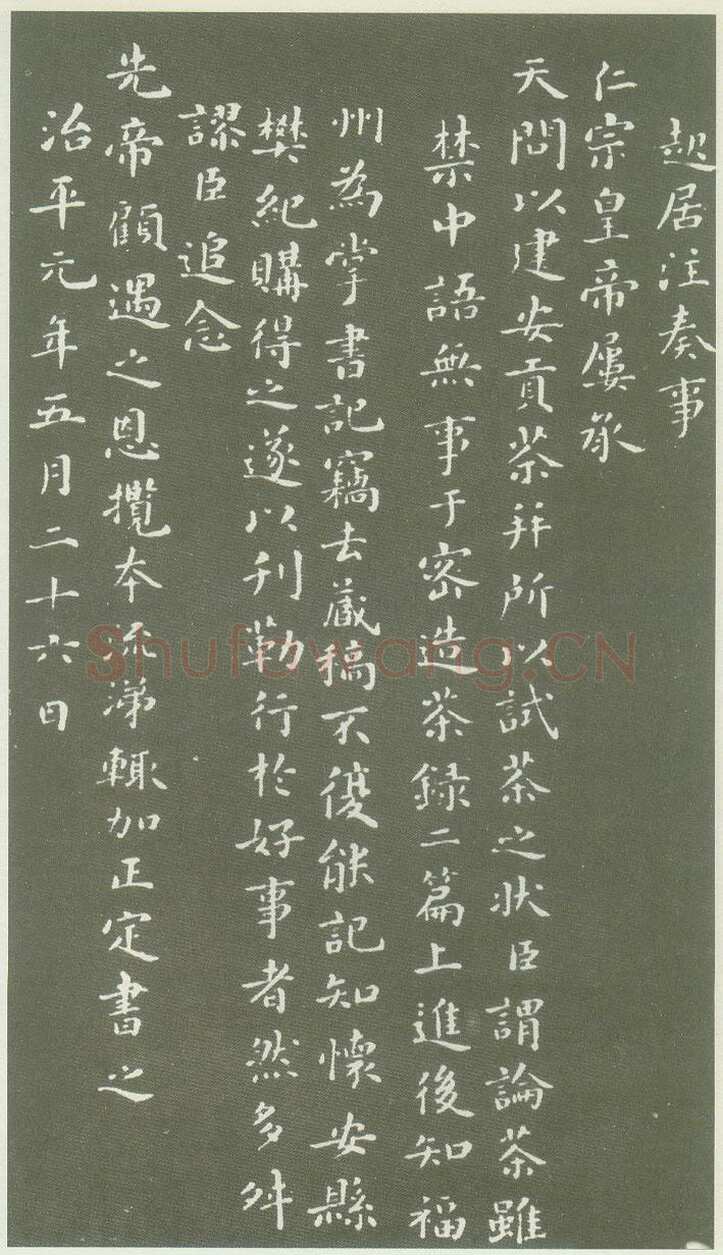 起居注奏事
仁宗皇帝屢承
天問以建安貢茶并所以試茶之狀臣謂論茶雖
禁中語無事于密造茶錄二篇上進後知福
州為掌書記竊去藏稿不復能記知懷安縣
樊紀購得之遂以刊勒行於好事者然多舛
謬臣追念
先帝顧遇之恩攬本流涕輒加正定書之
治平元年五月二十六日
Shufawang.CN